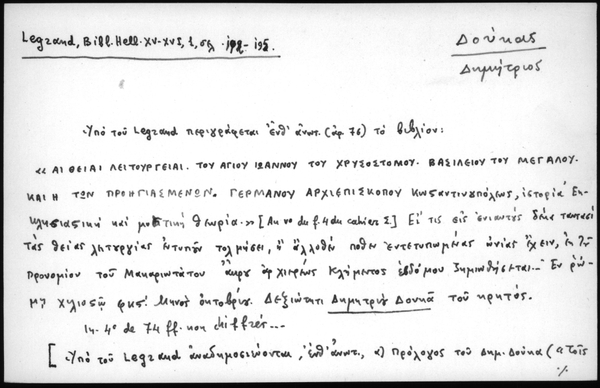 Legrand, Bibl. Hell. XV-XVI, 1, σελ. 192-195.
Δούκας
Δημήτριος
Ὑπὸ τοῦ Legrand περιγράφεται ἔνθ' ἀνωτ. (ἀρ. 76) τὸ βιβλίον:
« ΑΙ ΘΕΙΑΙ ΛΕΙΤΟΥΡΓΕΙΑΙ. ΤΟΥ ΑΓΙΟΥ ΙΩΑΝΝΟΥ ΤΟΥ ΧΡΥΣΟΣΤΟΜΟΥ. ΒΑΣΙΛΕΙΟΥ ΤΟΥ ΜΕΓΑΛΟΥ.
ΚΑΙ Η ΤΩΝ ΠΡΟΗΓΙΑΣΜΕΝΩΝ. ΓΕΡΜΑΝΟΥ ΑΡΧΙΕΠΙΣΚΟΠΟΥ Κωσταντινουπόλεως, ἱστορία Ἐκ-
κλησιαστικὴ καὶ μυστικὴ θεωρία.» [Au vo du f. 4 du cahier Σ] Εἴ τις εἰς ἐνιαυτοὺς δέκα ταυτασὶ
τὰς θείας λητυργίας ἐντυπῶν τολμήσει, ἢ ἄλλοθέν ποθεν ἐντετυπωμένας ὠνίας ἔχειν,
Προνομίου τοῦ Μακαριωτάτου ἄκρου ἀρχιερέως Κλήμεντος ἑβδόμου ζημιωθήσεται.- Ἐν ῥώ-
μῃ χιλιοστῷ φκς'. Μηνὸς ὀκτωβρίου. Δεξιώτητι Δημητρίου Δουκᾶ τοῦ κρητός.
In-4° de 74 ff. non chiffrés...
[ Ὑπὸ τοῦ Legrand ἀναδημοσιεύονται, ἔνθ' ἀνωτ., α) Πρόλογος τοῦ Δημ. Δούκα (« Τοῖς
./.